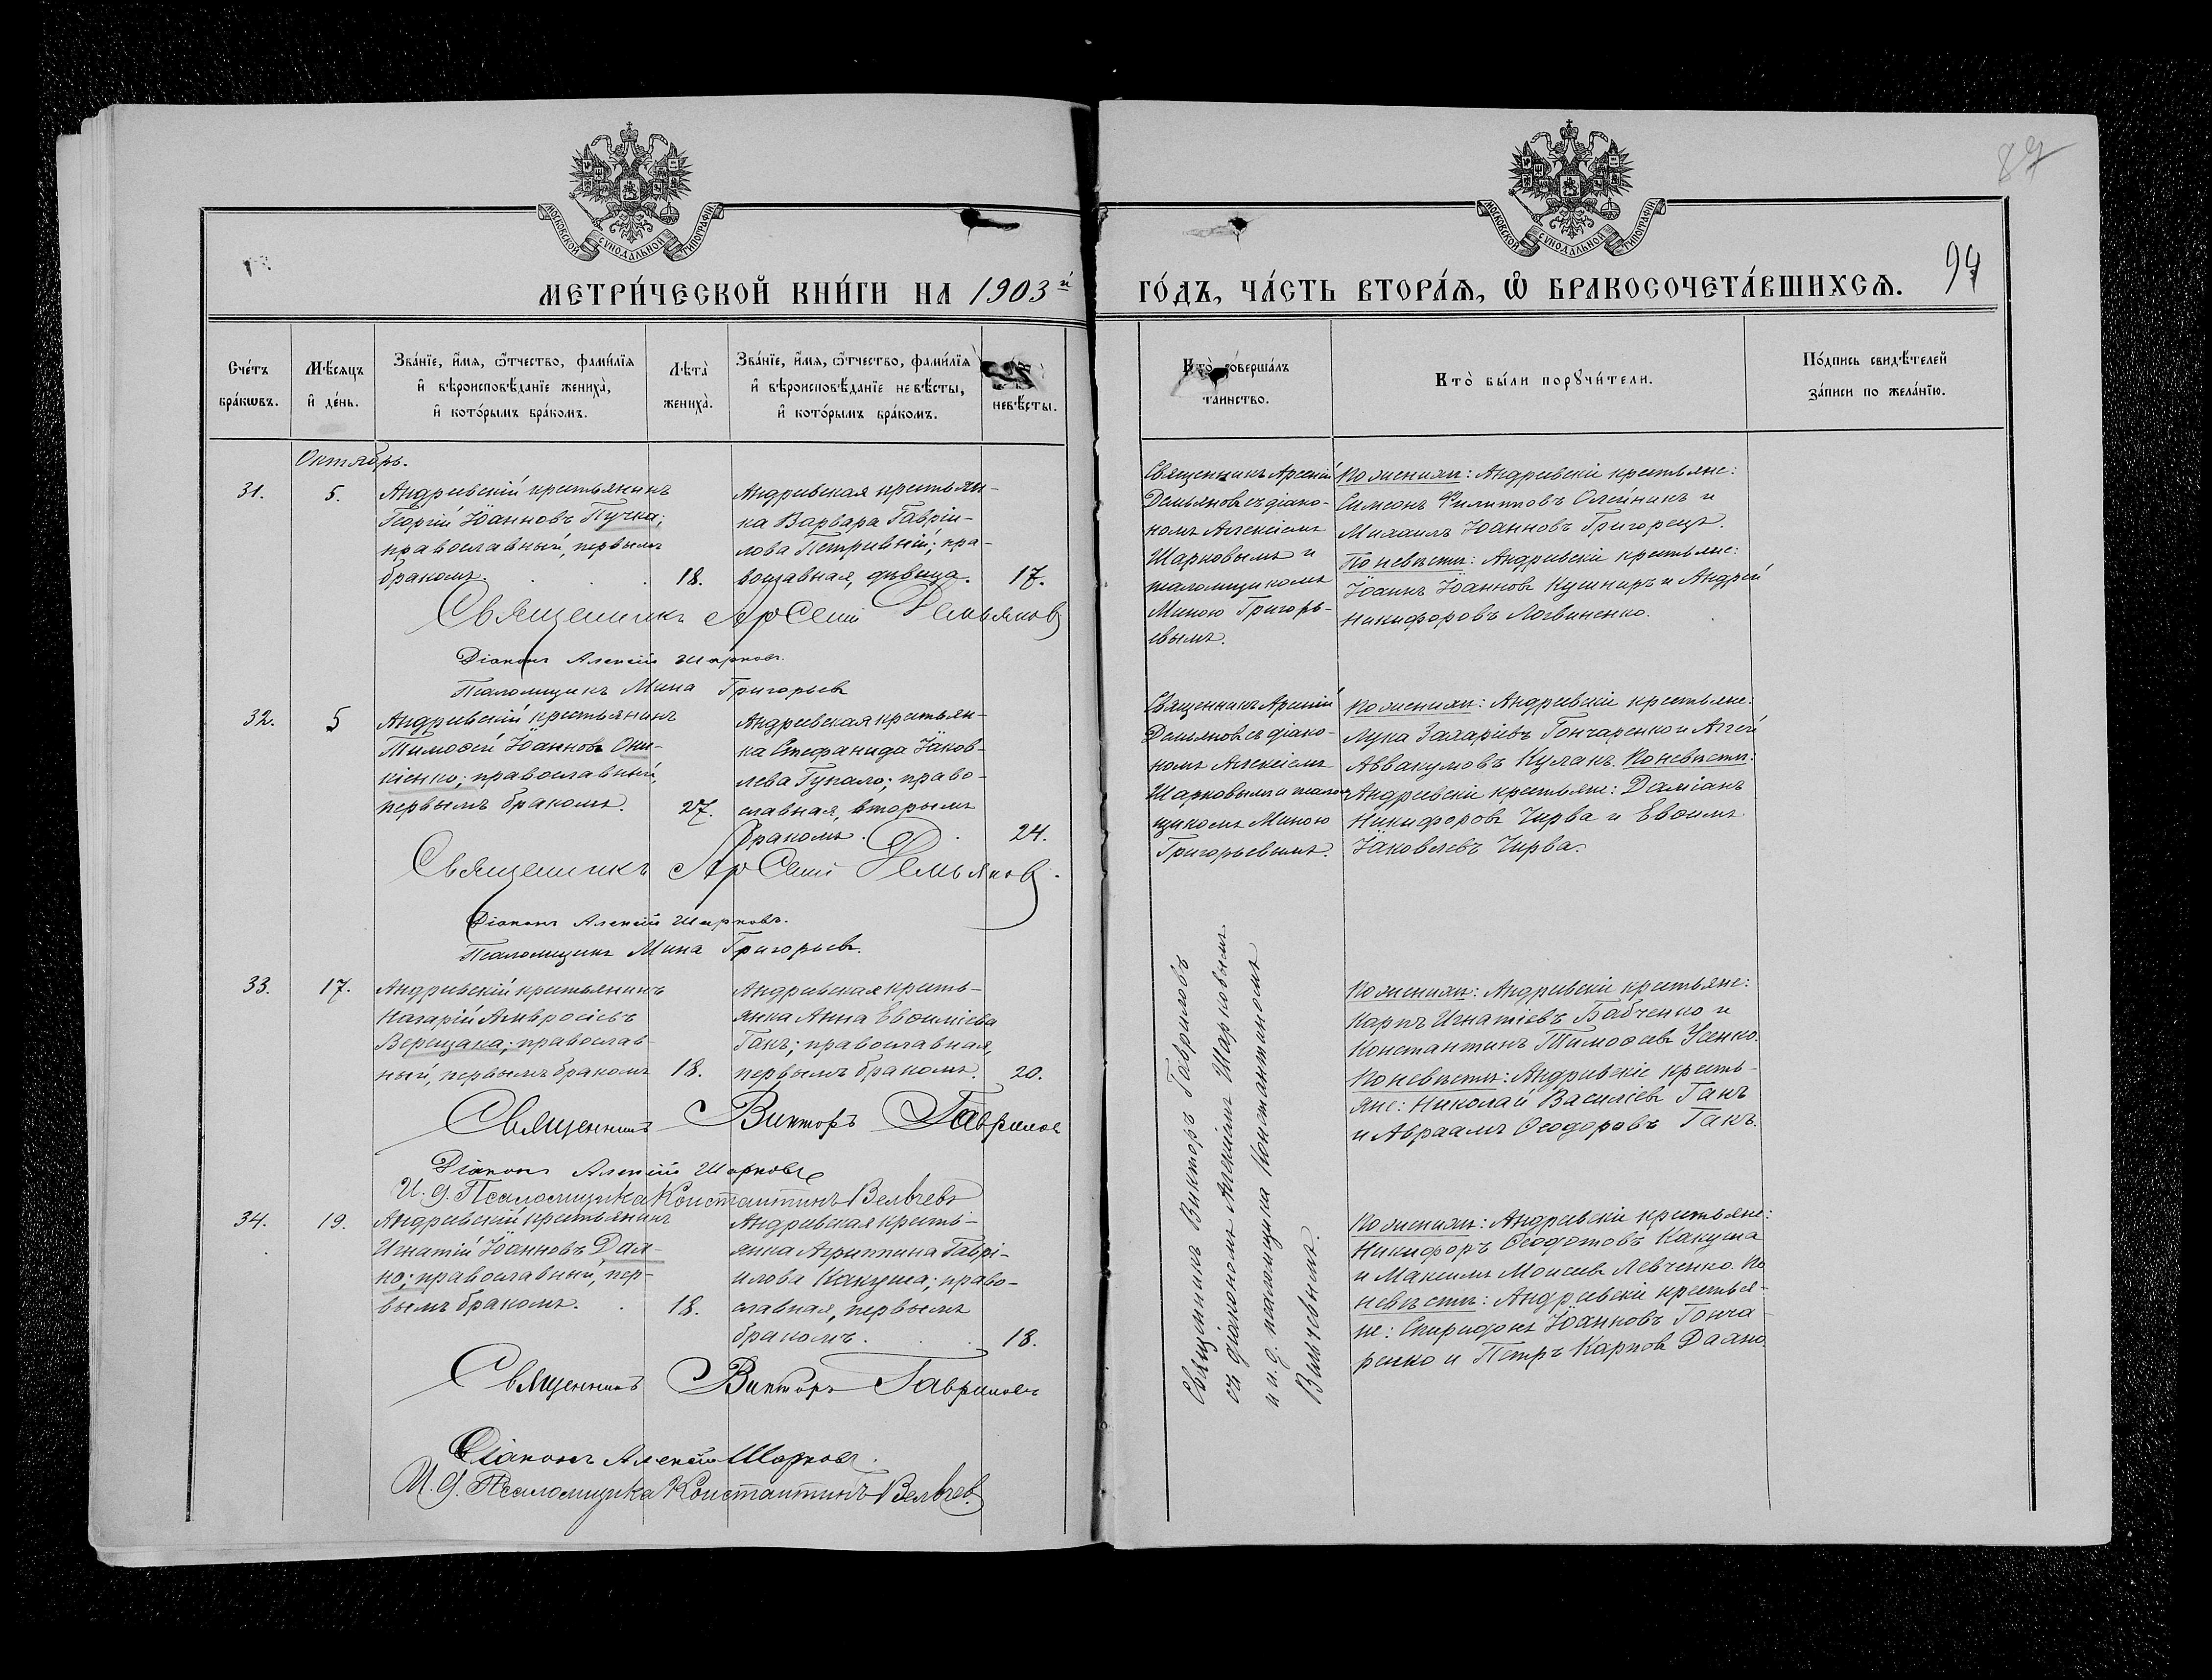 87
94
МОСКОВСКОЙ СѴНОДАЛЬНОЙ ТИПОГРАФІИ
МОСКОВСКОЙ СѴНОДАЛЬНОЙ ТИПОГРАФІИ
МЕТРИ́ЧЕСКОЙ КНИ́ГИ НА 1903й
ГО́ДЪ, ЧА́СТЬ ВТОРА́Ѧ, Ѽ БРАКОСОЧЕТА́ВШИХСѦ.
Сче́тъ бра́кѡвъ.
Мѣ́сяцъ и҆ де́нь.
Зва́нїе, и҆́мя, ѻ҆́тчество, фами́лїя и҆ вѣроисповѣ́данїе жениха̀, и҆ кото́рымъ бра́комъ.
Лѣта̀ жениха̀.
Зва́нїе, и҆́мя, ѻ҆́тчество, фами́лїя и҆ вѣроисповѣ́данїе невѣ́сты, и҆ кото́рымъ бра́комъ.
невѣ́сты.
Кто̀ соверша́лъ та́инство.
Кто̀ бы́ли порꙋчи́тели.
По́дпись свидѣ́телей за́писи по жела́нїю.
Октябрь.
31.
5.
Андреевскій крестьянинъ
Георгій Іоанновъ Пучка;
православный, первымъ
бракомъ.
18.
Андреевская крестьян-
ка Варвара Гаврiи-
лова Петривній; пра-
вославная, дѣвица.
17.
Священникъ Арсеній
Демьяновъ съ діако-
номъ Алексіемъ
Шарковымъ и
псаломщикомъ
Миною Григорь-
евымъ.
По женихѣ: Андреевскіе крестьяне:
Симеонъ Филипповъ Олейникъ и
Михаилъ Іоанновъ Григорецъ.
По невѣстѣ: Андреевскіе крестьяне:
Іоаннъ Іоанновъ Кушниръ и Андрей
Никифоровъ Логвиненко.
Священникъ Арсеній Демьяновъ
Діаконъ Алексій Шарковъ.
Псаломщикъ Мина Григорьевъ
32.
5
Андреевскій крестьянинъ
Тимофей Іоанновъ Они-
кіенко; православный,
первымъ бракомъ.
27.
Андреевская крестьян-
ка Стефанида Іаков-
лева Гупало; право-
славная, вторымъ
бракомъ.
24.
Священникъ Арсеній
Демьяновъ съ діако-
номъ Алексіемъ
Шарковымъ и псалом
щикомъ Миною
Григорьевымъ.
По женихѣ: Андреевскіе крестьяне:
Лука Захаріевъ Гончаренко и Аггей
Аввакумовъ Кулакъ. По невѣстѣ:
Андреевскіе крестьяне: Даміанъ
Никифоровъ Чирва и Евфимъ
Іаковлевъ Чирва.
Священникъ Арсеній Демьяновъ.
Діаконъ Алексій Шарковъ.
Псаломщикъ Мина Григорьевъ.
33.
17.
Андреевскій крестьянинъ
Назарій Амвросіевъ
Верещака; православ-
ный, первымъ бракомъ
18.
Андреевская кресть-
янка Анна Евфиміева
Гакъ; православная,
первымъ бракомъ.
20.
Священникъ Викторъ Гавриловъ
съ діакономъ Алексіемъ Шарковымъ
и и. д. псаломщика Константиномъ
Вельчевымъ.
По женихѣ: Андреевскіе крестьяне:
Карпъ Игнатіевъ Бабченко и
Константинъ Тимофеевъ Усенко.
По невѣстѣ: Андреевскіе кресть-
яне: Николай Василіевъ Гакъ
и Авраамъ Ѳеодоровъ Гакъ.
Священникъ Викторъ Гавриловъ
Діаконъ Алексій Шарковъ
И. д. Псаломщика Константинъ Вельчевъ
34.
19.
Андреевскій крестьянинъ
Игнатій Іоанновъ Дал-
но; православный, пер-
вымъ бракомъ.
18.
Андреевская кресть-
янка Агриппина Гаврі-
илова Какуша; право-
славная, первымъ
бракомъ.
18.
По женихѣ: Андреевскіе крестьяне:
Никифоръ Ѳеодотовъ Какуша
и Максимъ Моисеевъ Левченко. По
невѣстѣ: Андреевскіе крестья-
не: Спиридонъ Іоанновъ Гонча-
ренко и Петръ Карповъ Дално.
Священникъ Викторъ Гавриловъ
Діаконъ Алексій Шарковъ.
И. д. Псаломщика Константинъ Вельчевъ.